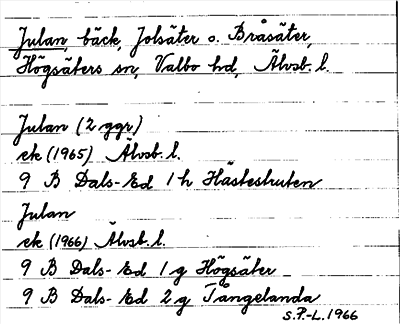 Julan, bäck, Jolsäter o. Bräsäter,
Högsäters sn, Valbo hd, Älvsb. l.
Julan (2 ggr)
ek (1965) Älvsb. l.
9 B Dals-Ed 1 h Hästeskuten
Julan
ek (1966) Älvsb. l.
9 B Dals-Ed 1 g Högsäter
9 B Dals-Ed 2 g Tångelanda
S.P.-L. 1966